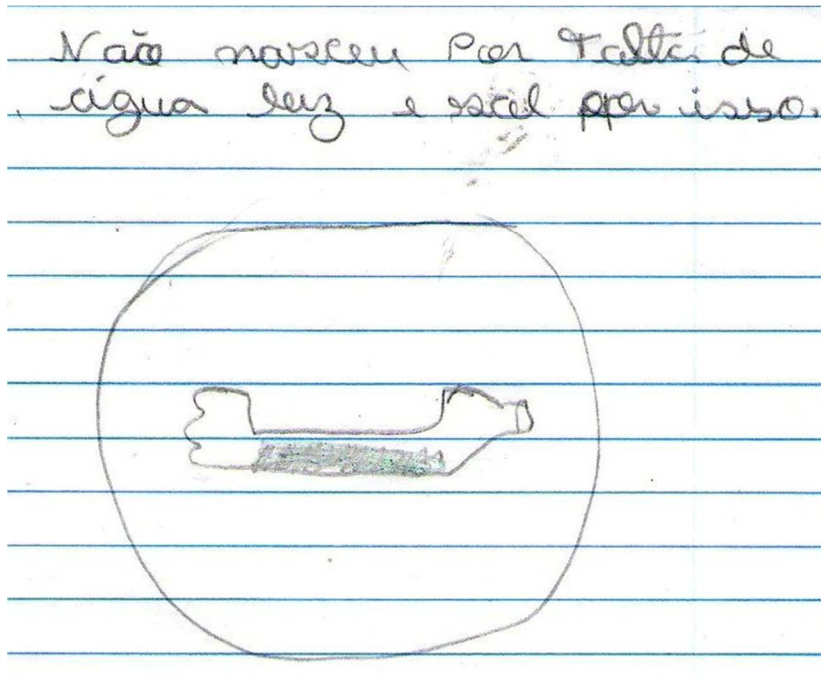 Não nasceu Por Falta de
água luz e sol por isso.